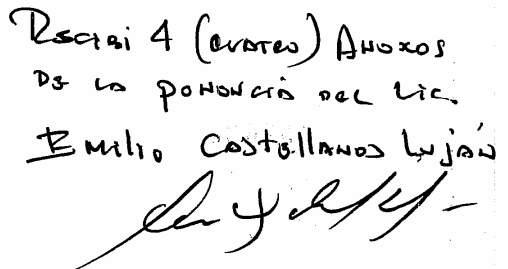 Recibi 4 (cuatro) Anexos
De la ponencia del Lic.
Emilio Castellanos Luján